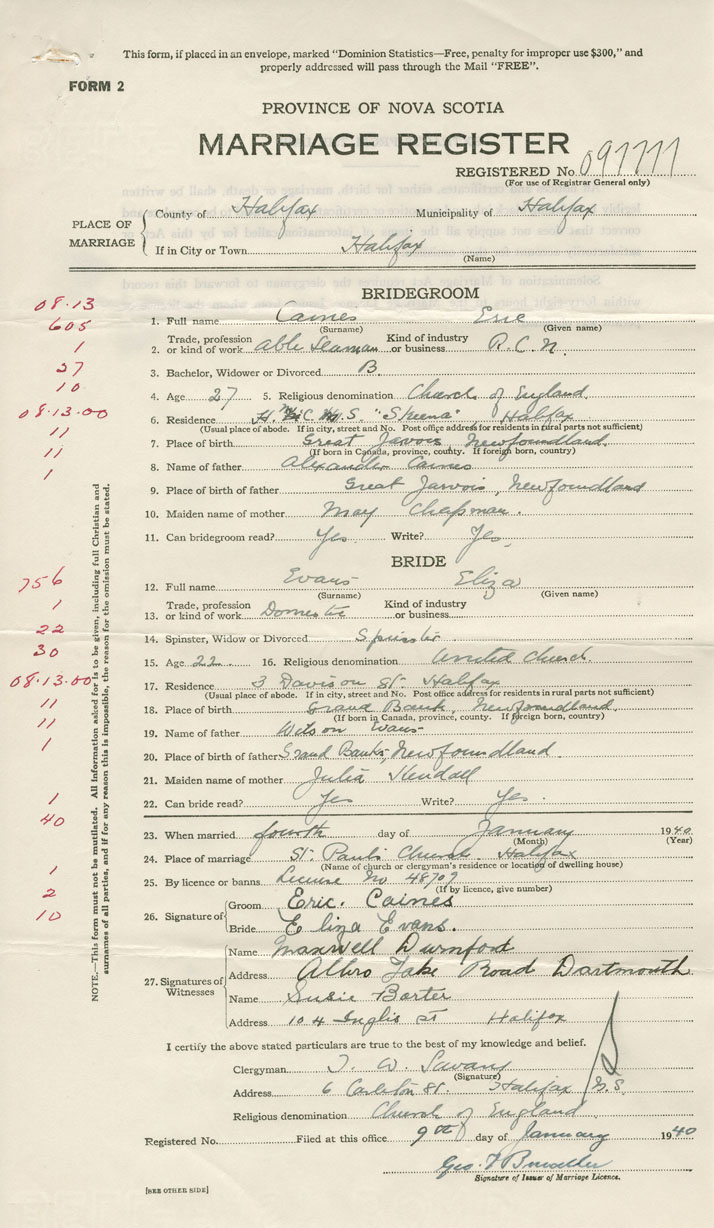 This form, if placed in an envelope, marked "Dominion Statistics—Free, penalty for improper use $300," and
properly addressed will pass through the Mail "FREE".
FORM 2
PROVINCE OF NOVA SCOTIA
MARRIAGE REGISTER
REGISTERED No. 097777
(For use of Registrar General only)
PLACE OF MARRIAGE
County of Halifax Municipality of Halifax
If in City or Town Halifax
(Name)
BRIDEGROOM
08.13
1. Full name Caines Eric
(Surname) (Given name)
605
2. Trade, profession or kind of work Able Seaman Kind of industry or business R.C.N.
1
3. Bachelor, Widower or Divorced B.
27
4. Age 27 5. Religious denomination Church of England.
10
6. Residence H.M.C.S. "Skeena" Halifax
08.13.00
(Usual place of abode. If in city, street and No. Post office address for residents in rural parts not sufficient)
7. Place of birth Great Jarvois, Newfoundland.
11
(If born in Canada, province, county. If foreign born, country)
8. Name of father Alexander Caines
11
9. Place of birth of father Great Jarvois, Newfoundland
1
10. Maiden name of mother May Chapman.
11. Can bridegroom read? Yes. Write? Yes.
BRIDE
12. Full name Evans Eliza
756
(Surname) (Given name)
13. Trade, profession or kind of work Domestic Kind of industry or business
1
14. Spinster, Widow or Divorced Spinster
22
15. Age 22 16. Religious denomination United Church.
30
17. Residence 3 Davison St. Halifax
08.13.00
(Usual place of abode. If in city, street and No. Post office address for residents in rural parts not sufficient)
18. Place of birth Grand Bank, Newfoundland.
11
(If born in Canada, province, county. If foreign born, country)
19. Name of father Wilson Evans
11
20. Place of birth of father Grand Banks, Newfoundland.
1
21. Maiden name of mother Julia Kendall
22. Can bride read? Yes Write? Yes.
1
23. When married fourth day of January 1940
40
(Month) (Year)
24. Place of marriage St. Paul's Church. Halifax
(Name of church or clergyman's residence or location of dwelling house)
25. By licence or banns License No 48707
1
(If by licence, give number)
26. Signature of
Groom Eric. Caines
2
Bride Eliza Evans.
10
27. Signatures of Witnesses
Name Maxwell Durnford
Address Albro Lake Road Dartmouth
Name Susie Barter
Address 104 Inglis St Halifax
I certify the above stated particulars are true to the best of my knowledge and belief.
Clergyman T. W. Savary
(Signature)
Address 6 Carleton St. Halifax N.S.
Religious denomination Church of England
Registered No. Filed at this office 9th day of January 1940
Geo. 
Signature of Issuer of Marriage Licence.
[SEE OTHER SIDE]
NOTE.—This form must not be mutilated. All Information asked for is to be given, including full Christian and
surnames of all parties, and if for any reason this is impossible, the reason for the omission must be stated.